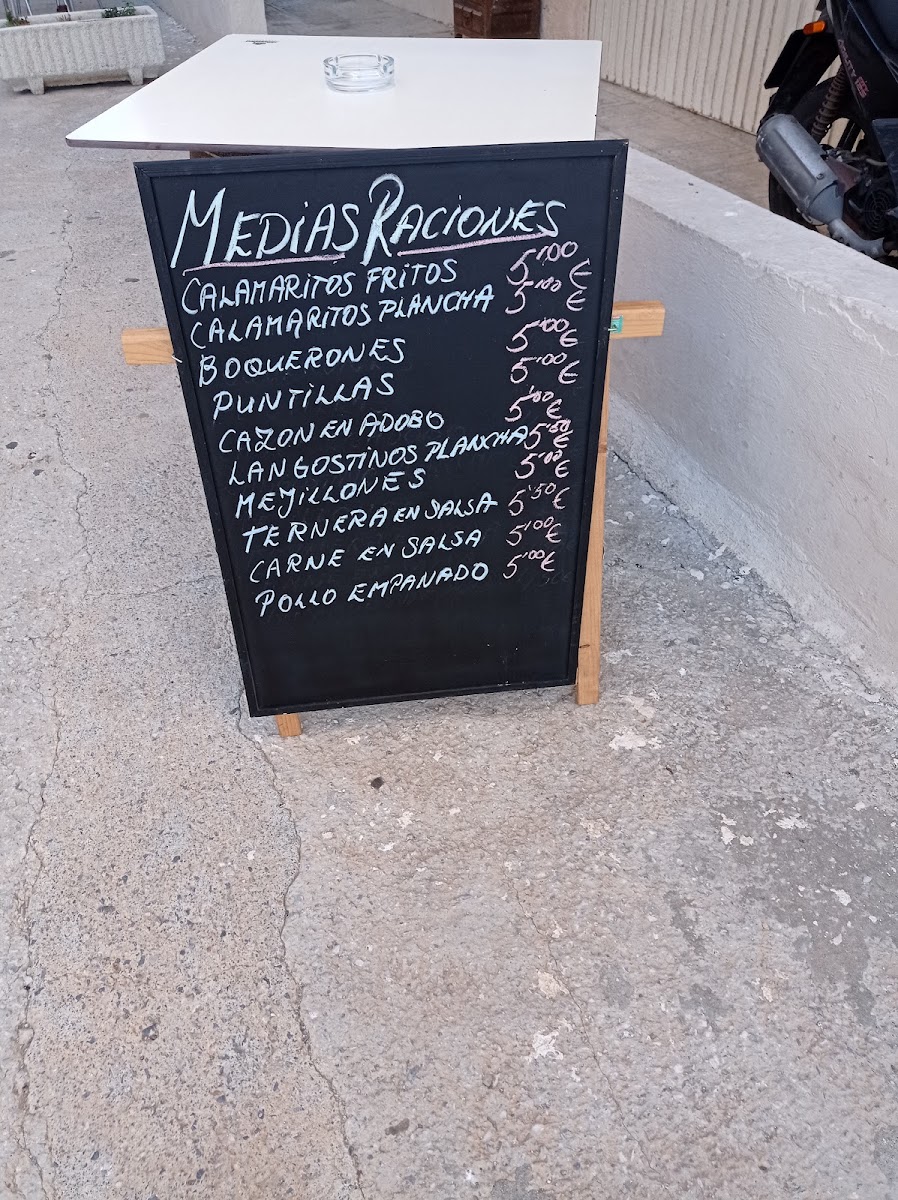 MEDIAS RACIONES
CALAMARITOS FRITOS 5'00 €
CALAMARITOS PLANCHA 5'00 €
BOQUERONES 5'00 €
PUNTILLAS 5'00 €
CAZON EN ADOBO 5'00 €
LANGOSTINOS PLANCHA 5'50 €
MEJILLONES 5'00 €
TERNERA EN SALSA 5'50 €
CARNE EN SALSA 5'00 €
POLLO EMPANADO 5'00 €